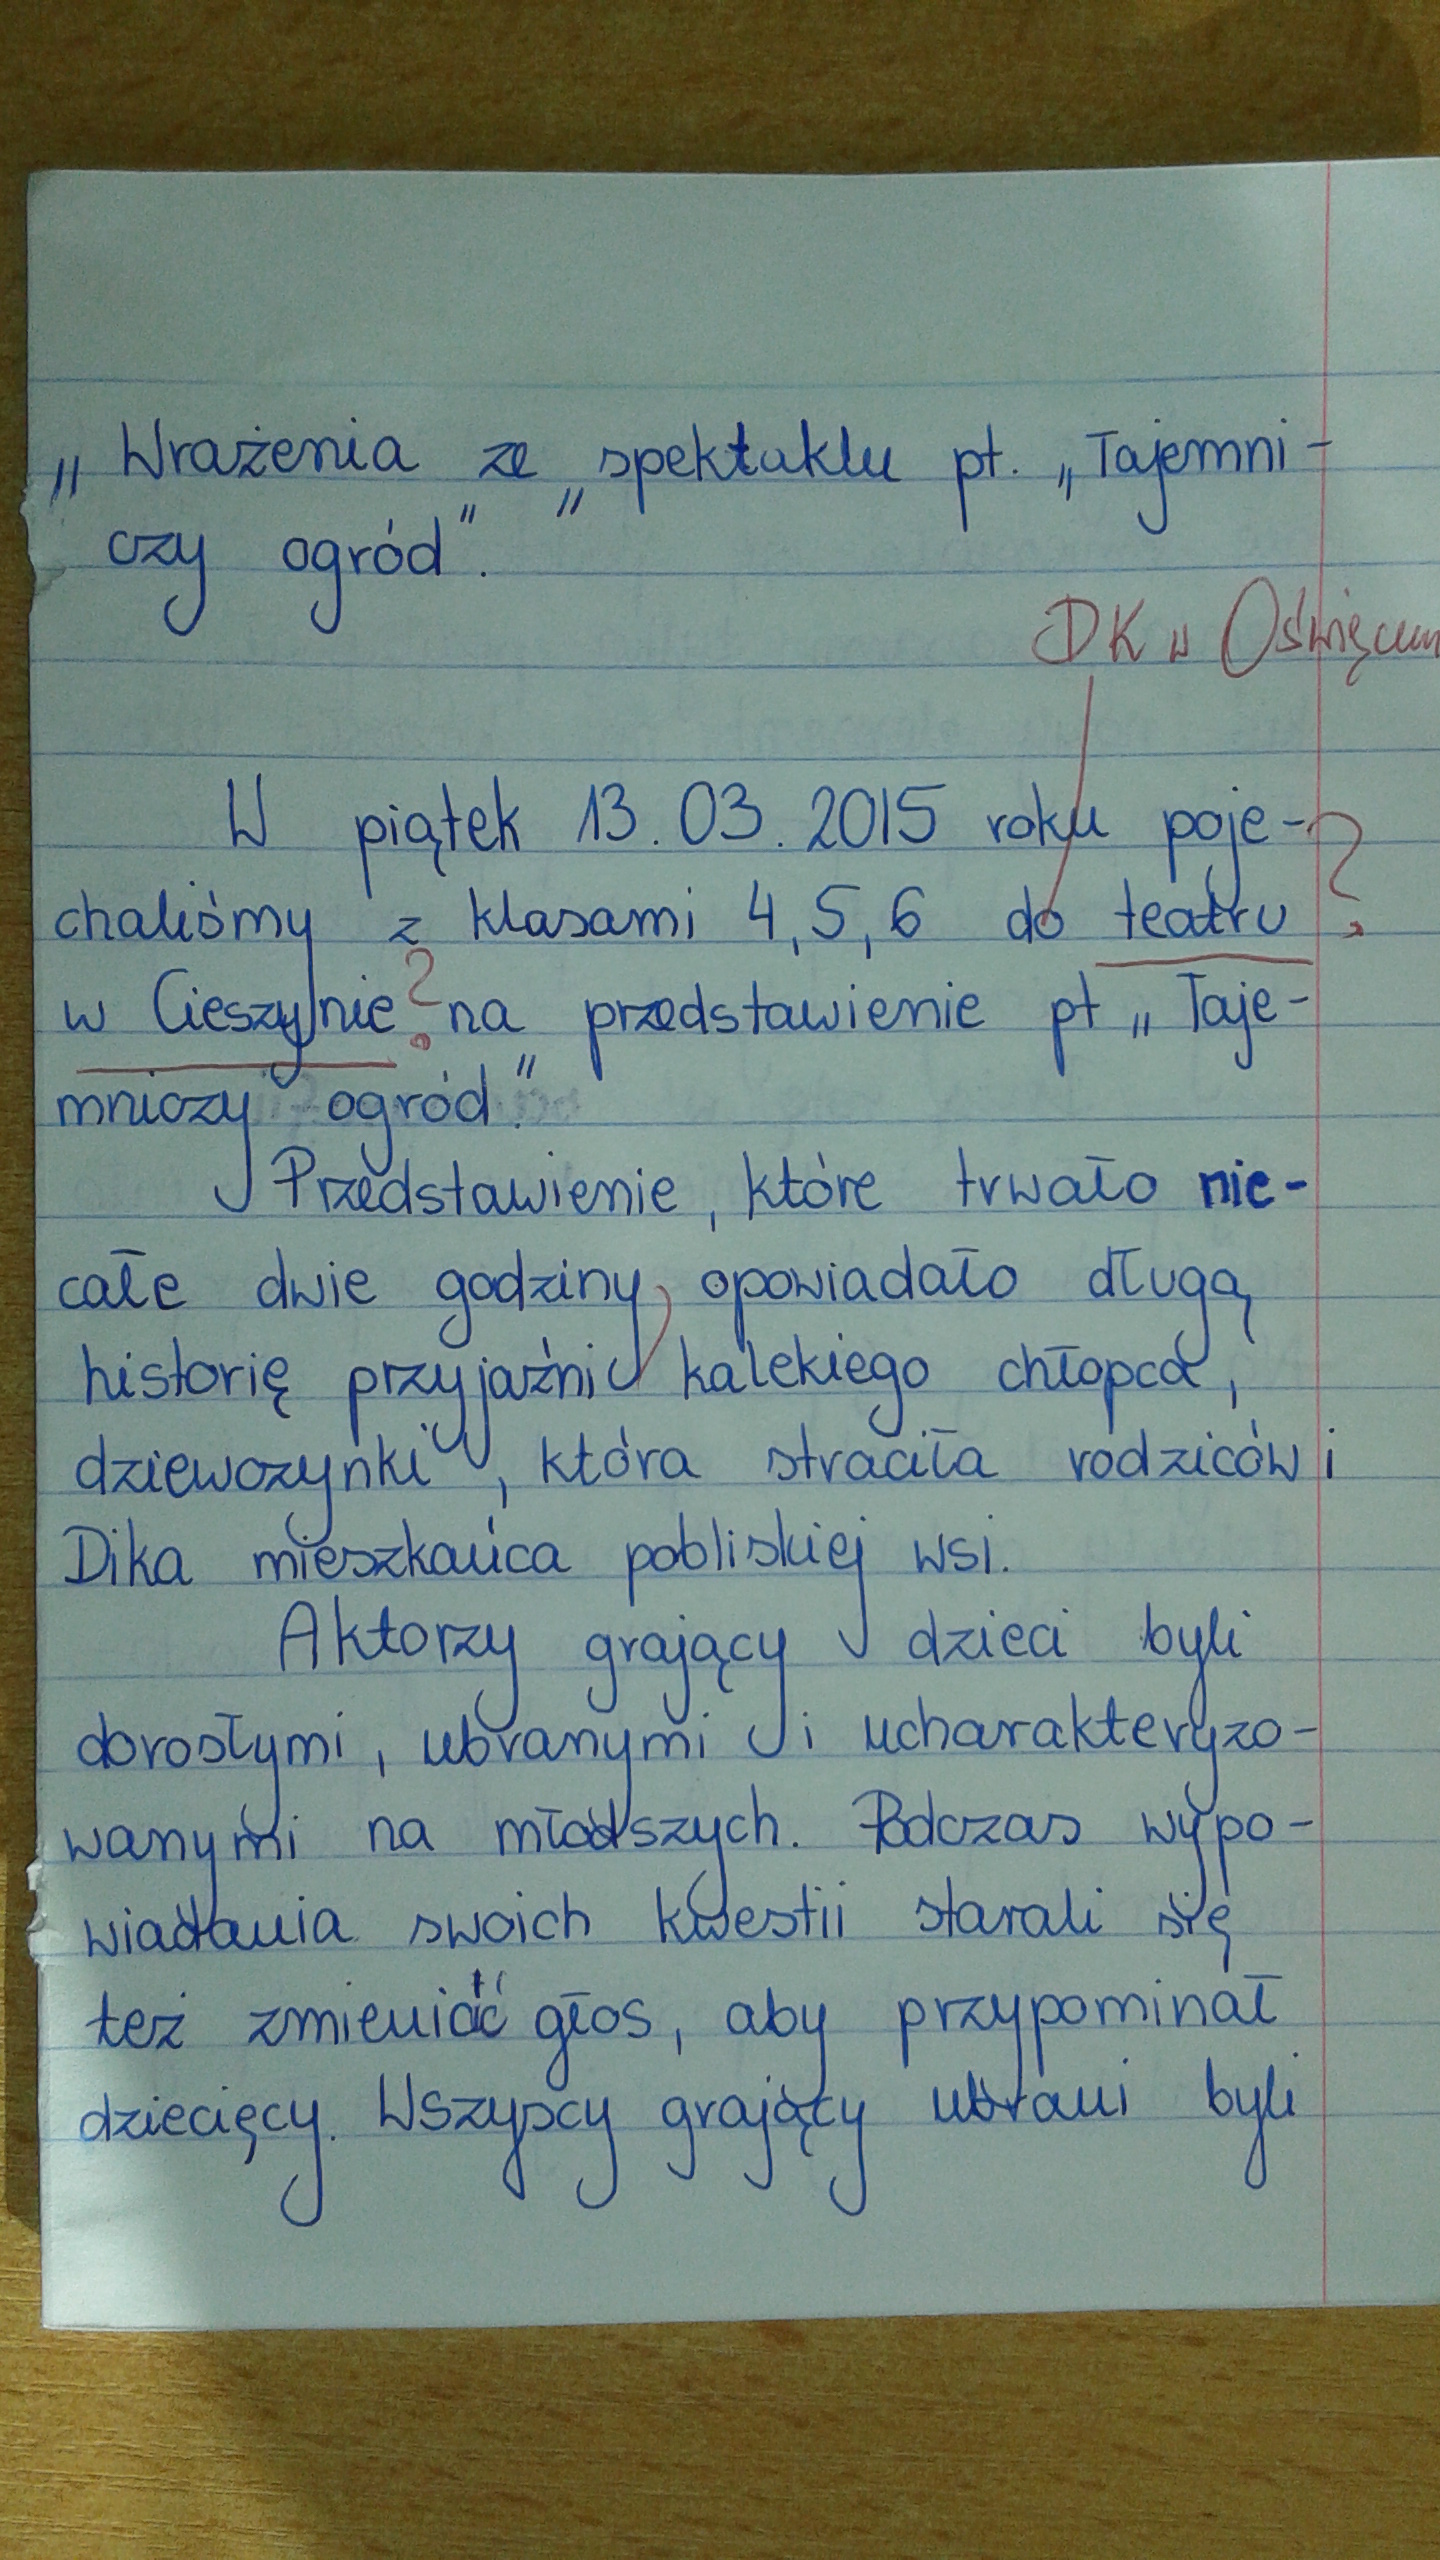 „Wrażenia ze „spektaklu pt. „Tajemni-
czy ogród”.”
DK w Oświęcim
W piątek 13.03.2015 roku poje- ?
chaliśmy z klasami 4,5,6 do teatru
w Cieszynie ? na przedstawienie pt „Taje-
mniczy ogród.”
Przedstawienie, które trwało nie-
całe dwie godziny, opowiadało długą
historię przyjaźni kalekiego chłopca,
dziewczynki, która straciła rodziców i
Dika mieszkańca pobliskiej wsi.
Aktorzy grający dzieci byli
dorosłymi, ubranymi i ucharakteryzo-
wanymi na młodszych. Podczas wypo-
wiadania swoich kwestii starali się
też zmieniać głos, aby przypominał
dziecięcy. Wszyscy grający ubrani byli